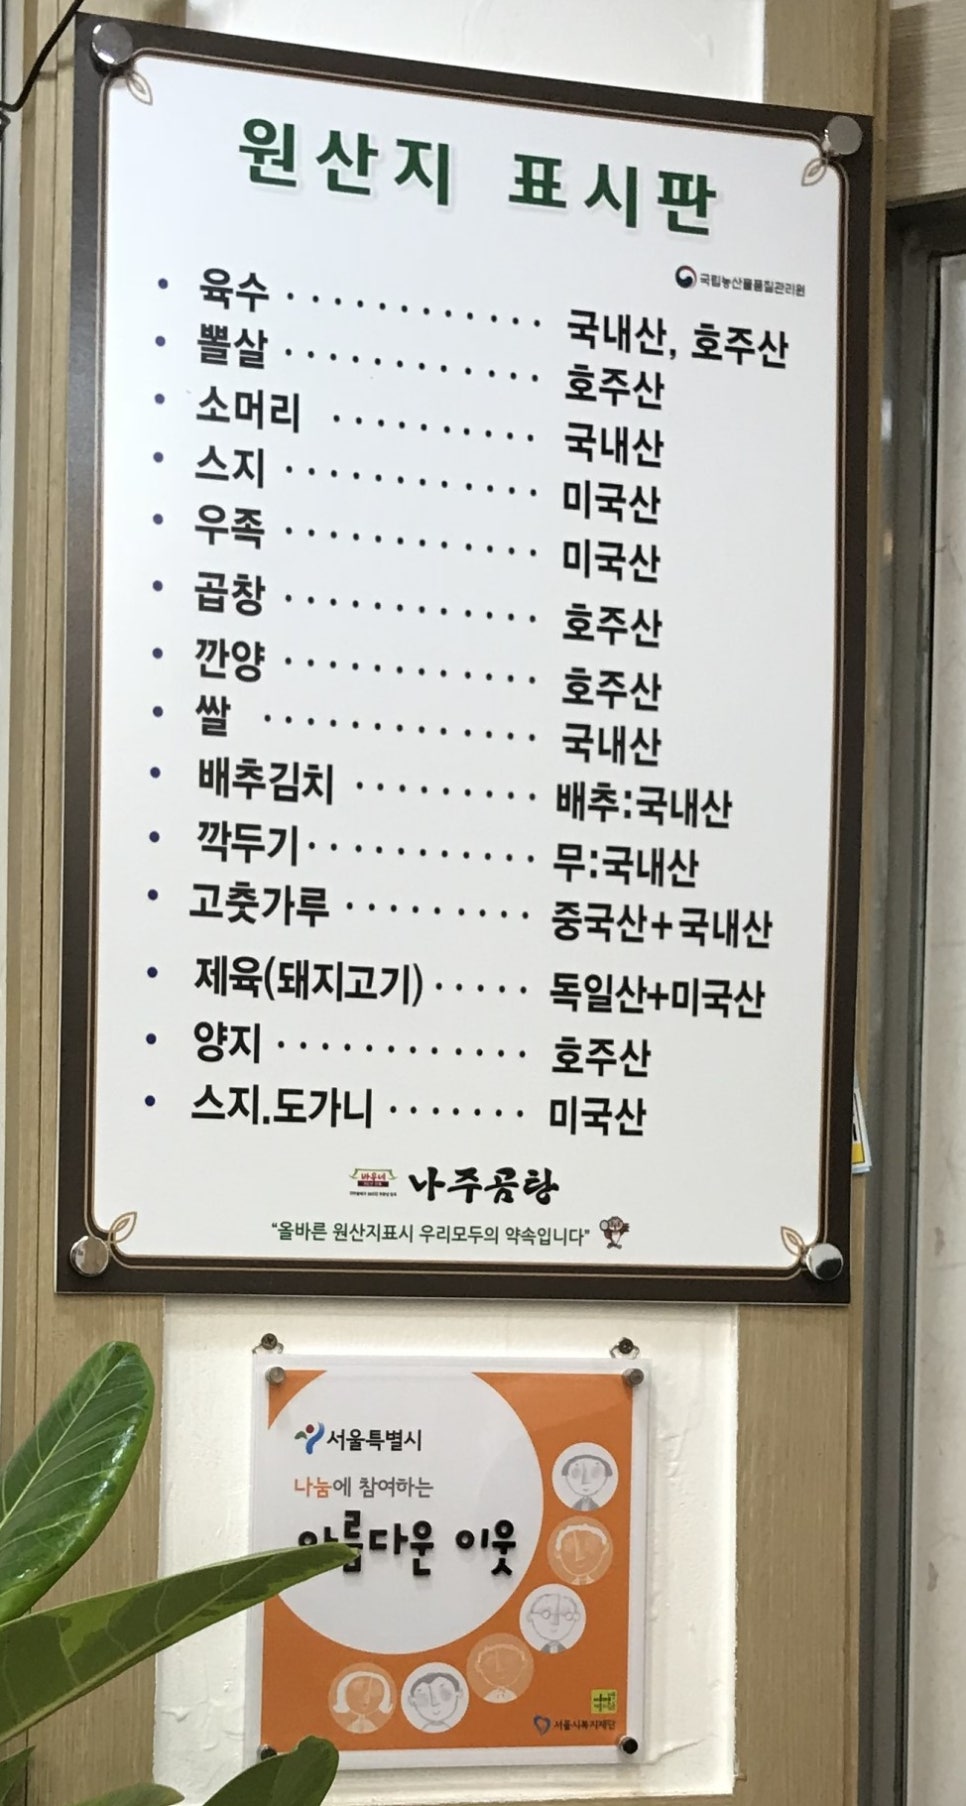 원산지 표시판
국립농산물품질관리원
• 육수 ············ 국내산, 호주산
• 뽈살 ············ 호주산
• 소머리 ·········· 국내산
• 스지 ············ 미국산
• 우족 ············ 미국산
• 곱창 ············ 호주산
• 깐양 ············ 호주산
• 쌀 ············· 국내산
• 배추김치 ········· 배추:국내산
• 깍두기 ··········· 무:국내산
• 고춧가루 ········· 중국산+국내산
• 제육(돼지고기) ····· 독일산+미국산
• 양지 ············ 호주산
• 스지.도가니 ······· 미국산
나주곰탕
“올바른 원산지표시 우리모두의 약속입니다”
서울특별시
나눔에 참여하는
아름다운 이웃
서울시복지재단